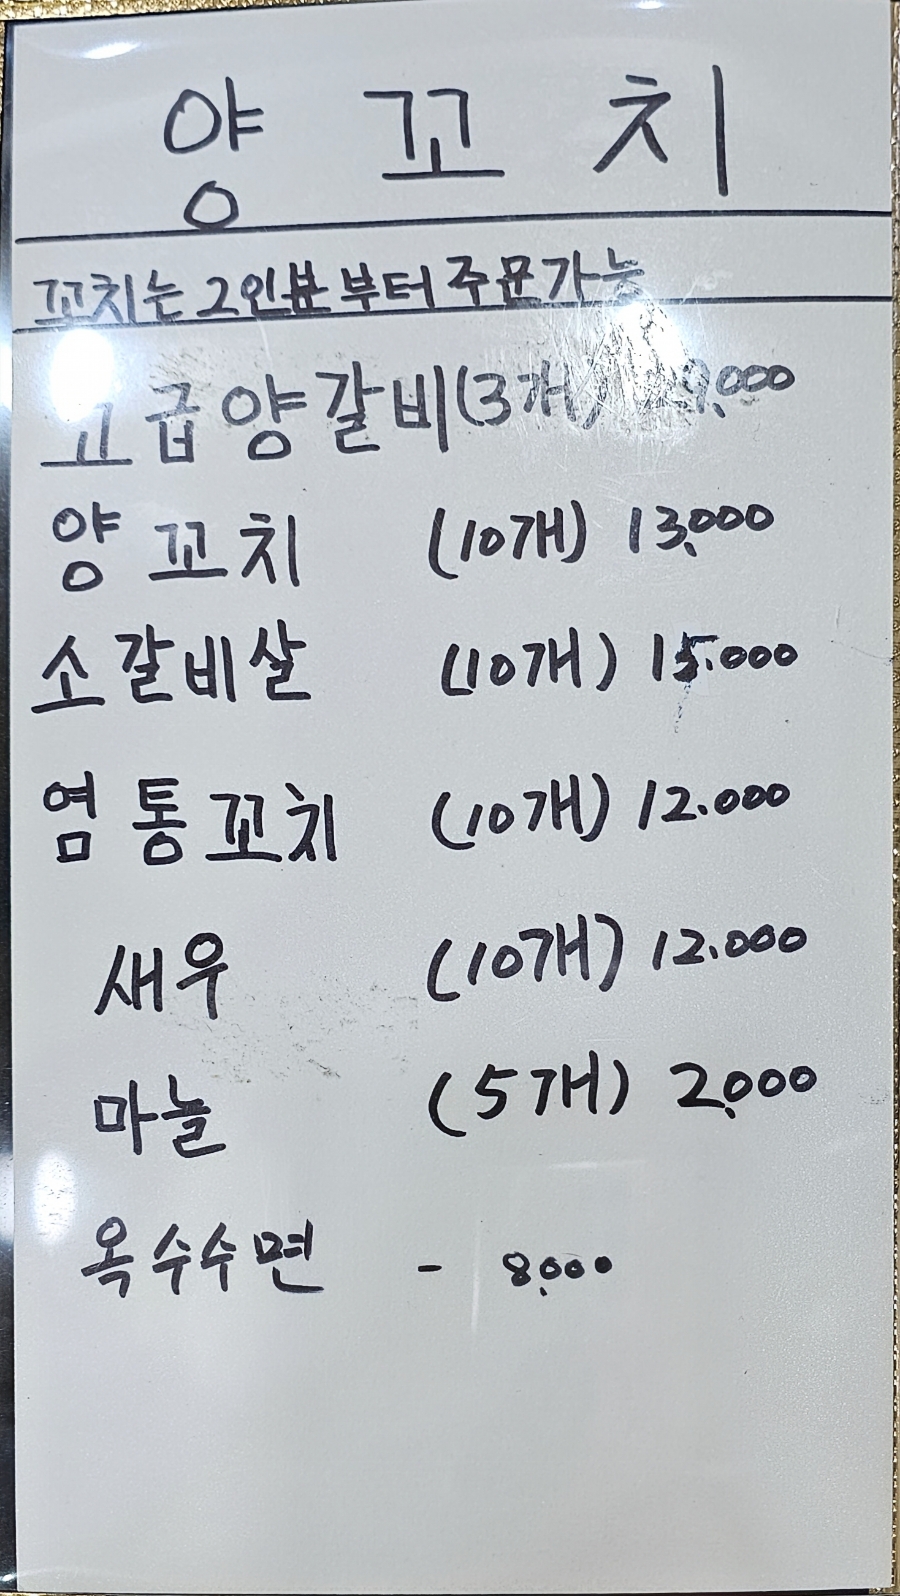 양 꼬 치
꼬치는 2인분 부터 주문가능
고급양갈비(3개)
양 꼬치 (10개) 13,000
소갈비살 (10개) 15.000
염통꼬치 (10개) 12.000
새우 (10개) 12.000
마늘 (5개) 2,000
옥수수면 - 8,000